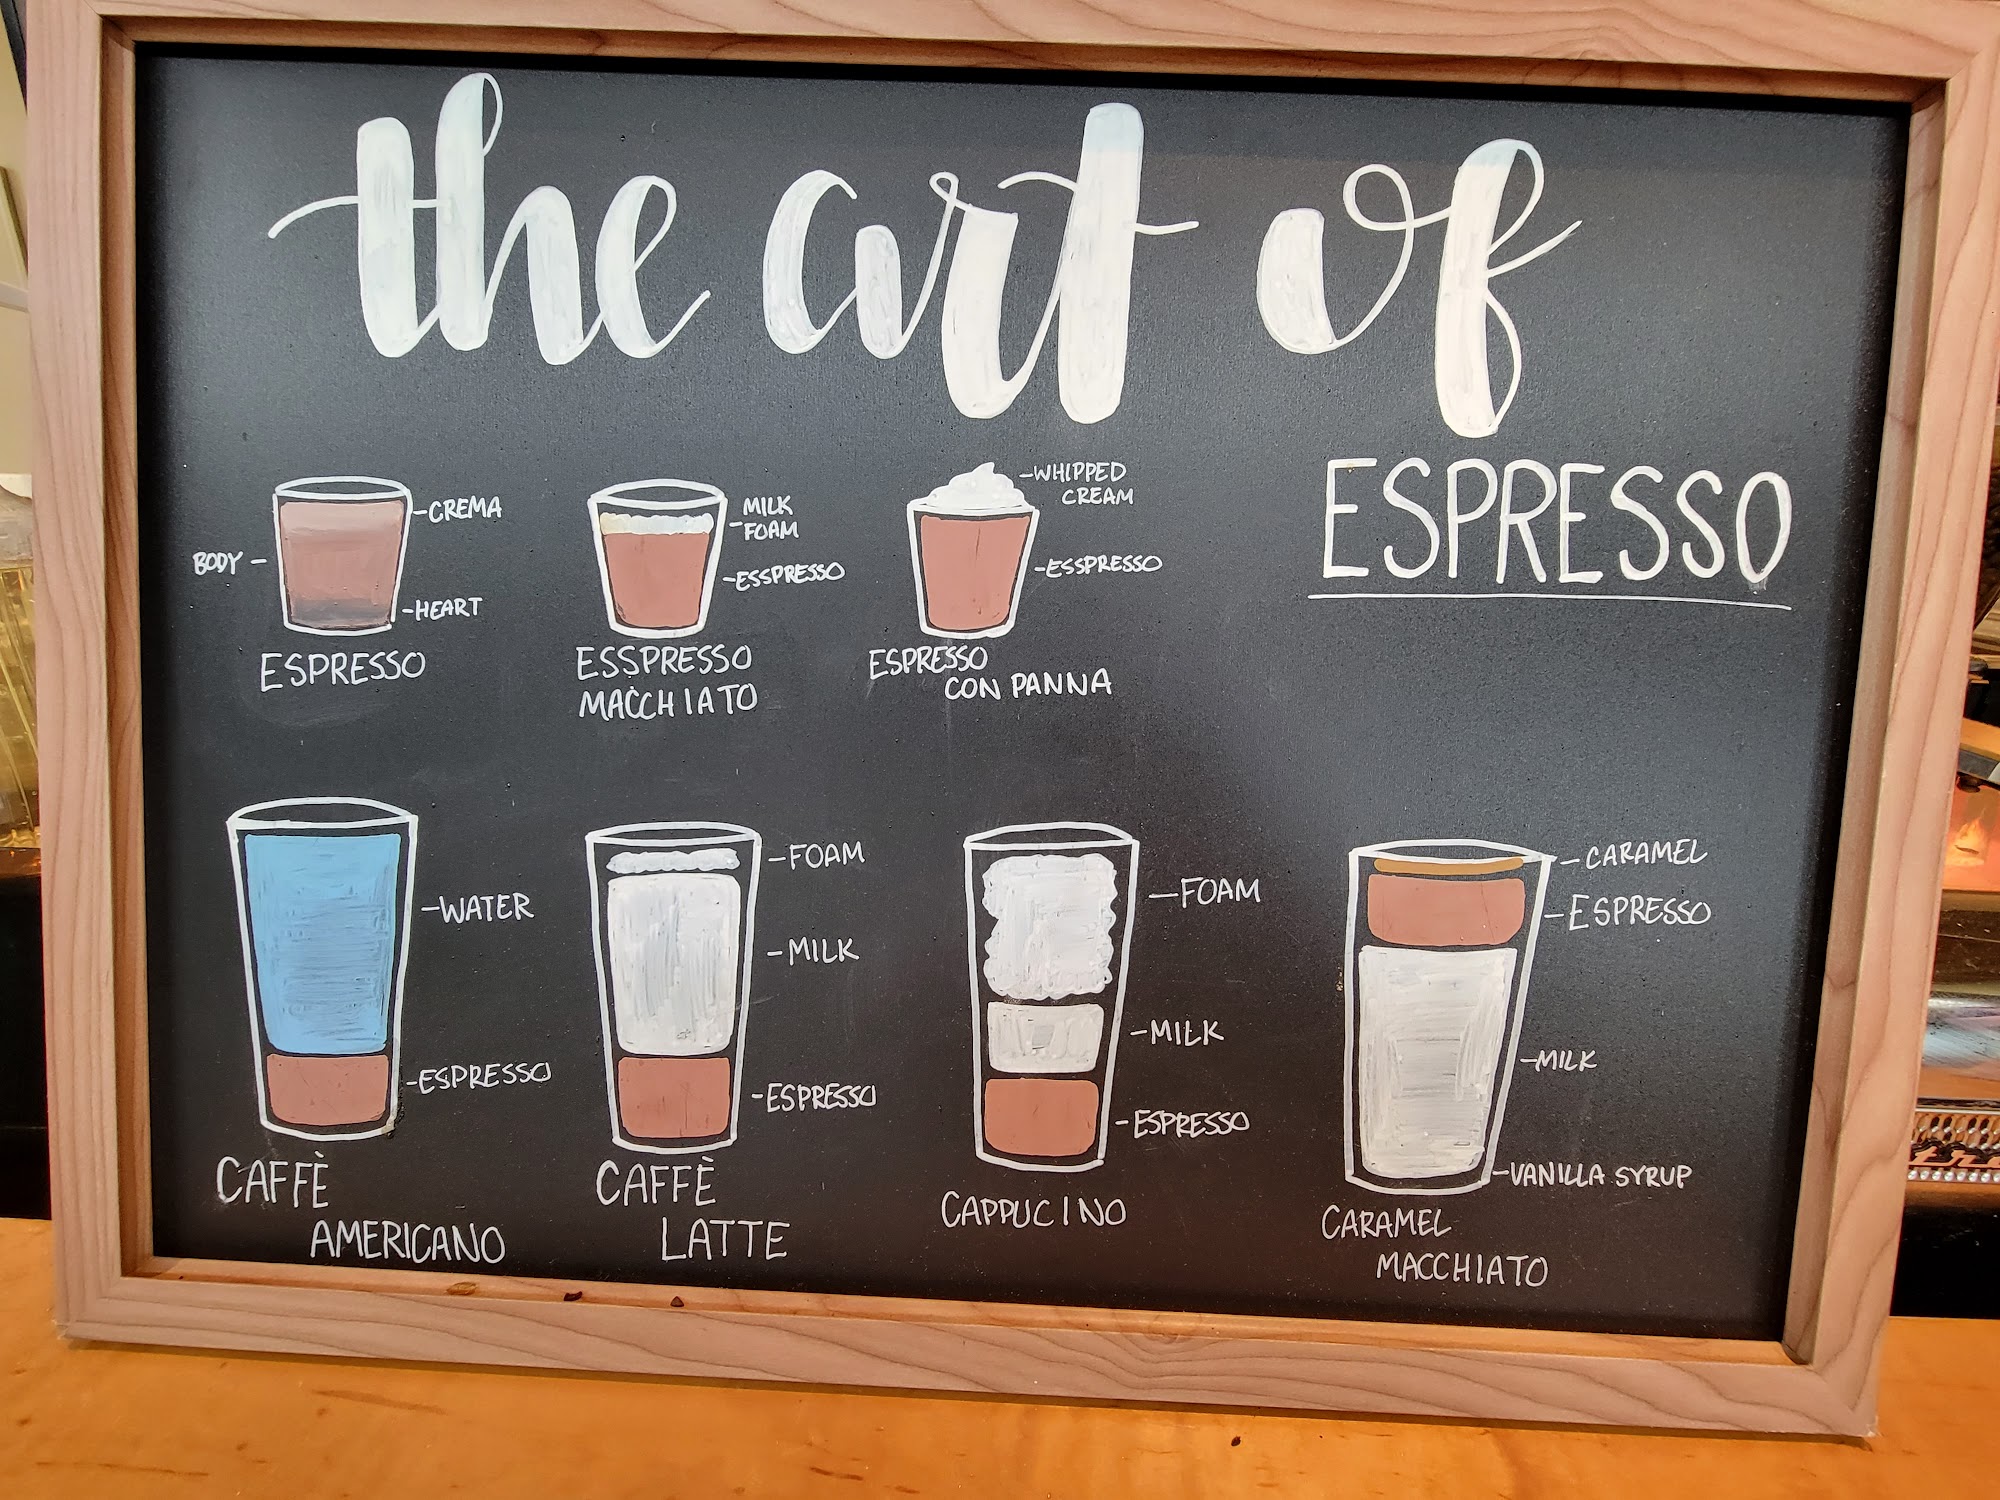 the art of
ESPRESSO
CREMA
BODY
HEART
ESPRESSO
MILK
FOAM
ESSPRESSO
ESSPRESSO
MACCHIATO
WHIPPED
CREAM
ESSPRESSO
ESPRESSO
CON PANNA
WATER
ESPRESSO
CAFFÈ
AMERICANO
FOAM
MILK
ESPRESSO
CAFFÈ
LATTE
FOAM
MILK
ESPRESSO
CAPPUCINO
CARAMEL
ESPRESSO
MILK
VANILLA SYRUP
CARAMEL
MACCHIATO